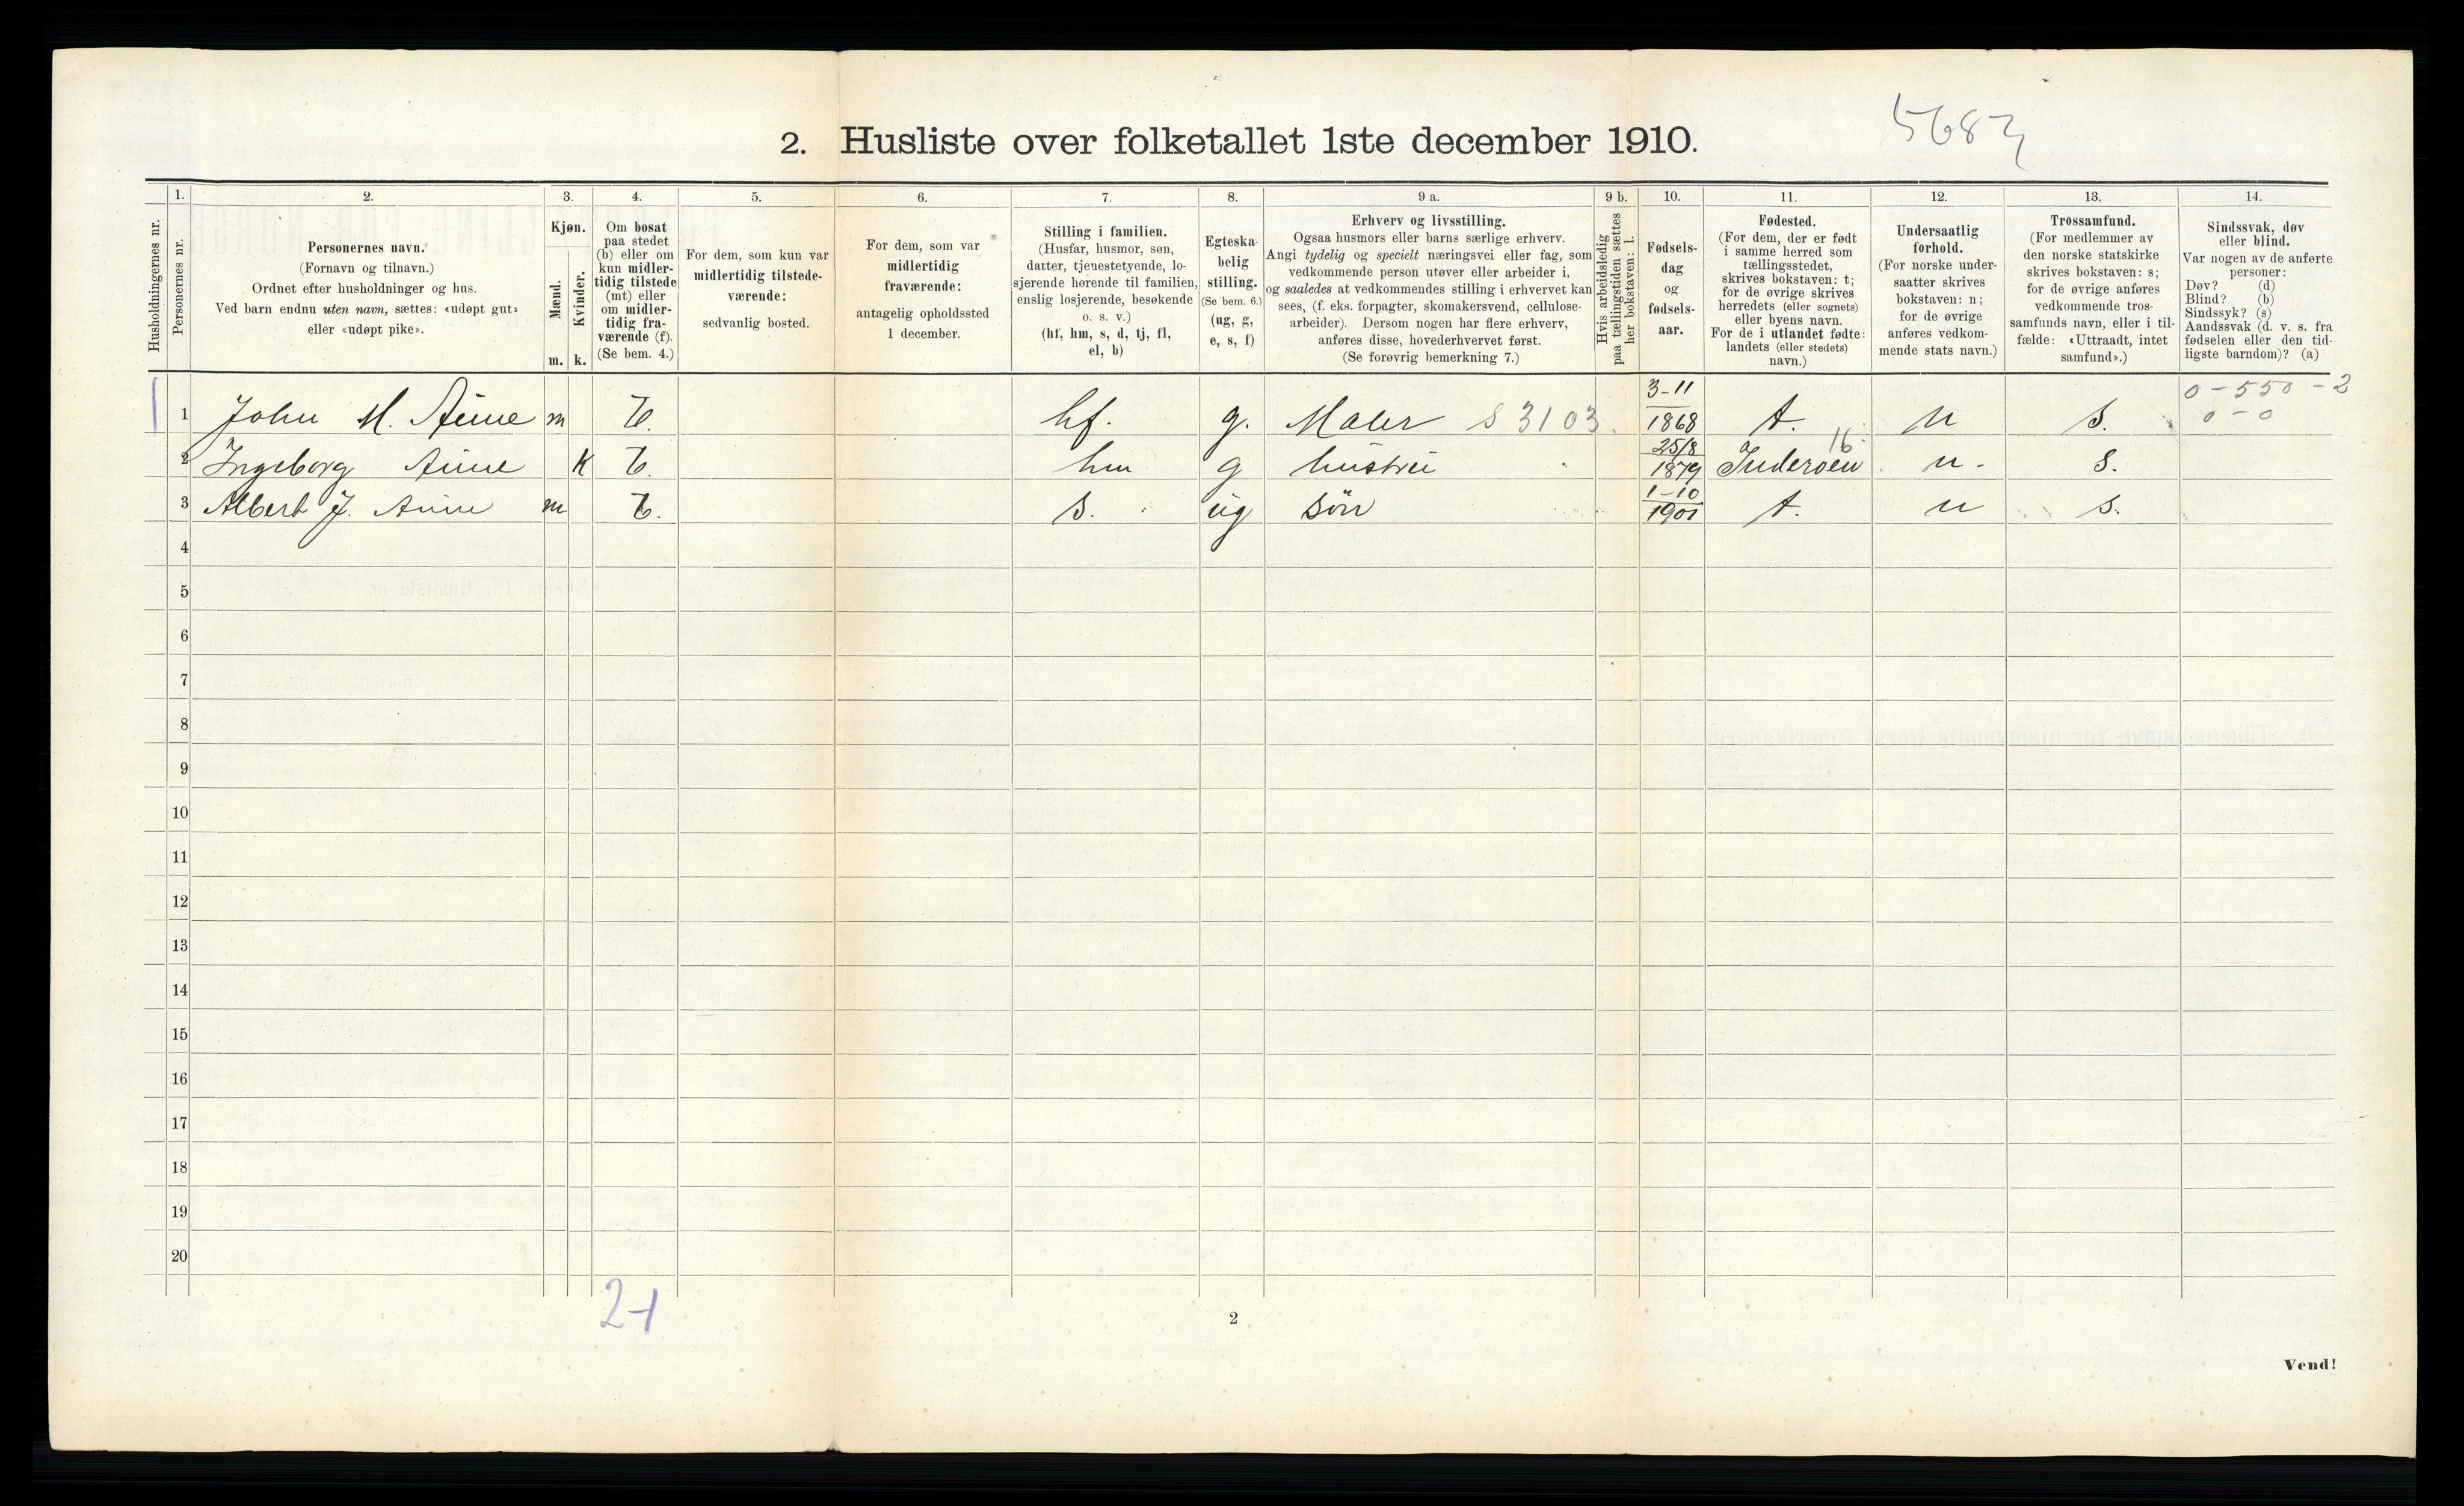 5683
2. Husliste over folketallet 1ste december 1910.
Husholdningernes nr.
1.
Personernes nr.
2.
Personernes navn.
(Fornavn og tilnavn.)
Ordnet efter husholdninger og hus.
Ved barn endnu uten navn, sættes: «udøpt gut»
eller «udøpt pike».
3.
Kjøn.
Mænd.
Kvinder.
m. k.
4.
Om bosat
paa stedet
(b) eller om
kun midler-
tidig tilstede
(mt) eller
om midler-
tidig fra-
værende (f).
(Se bem. 4.)
5.
For dem, som kun var
midlertidig tilstede-
værende:
sedvanlig bosted.
6.
For dem, som var
midlertidig
fraværende:
antagelig opholdssted
1 december.
7.
Stilling i familien.
(Husfar, husmor, søn,
datter, tjenestetyende, lo-
sjerende hørende til familien,
enslig losjerende, besøkende
o. s. v.)
(hf, hm, s, d, tj, fl,
el, b)
8.
Egteska-
belig
stilling.
(Se bem. 6.)
(ug, g,
e, s, f)
9 a.
Erhverv og livsstilling.
Ogsaa husmors eller barns særlige erhverv.
Angi tydelig og specielt næringsvei eller fag, som
vedkommende person utøver eller arbeider i,
og saaledes at vedkommendes stilling i erhvervet kan
sees, (f. eks. forpagter, skomakersvend, cellulose-
arbeider). Dersom nogen har flere erhverv,
anføres disse, hovederhvervet først.
(Se forøvrig bemerkning 7.)
9 b.
Hvis arbeidsledig
paa tællingstiden sættes
her bokstaven: l.
10.
Fødsels-
dag
og
fødsels-
aar.
11.
Fødested.
(For dem, der er født
i samme herred som
tællingsstedet,
skrives bokstaven: t;
for de øvrige skrives
herredets (eller sognets)
eller byens navn.
For de i utlandet fødte:
landets (eller stedets)
navn.)
12.
Undersaatlig
forhold.
(For norske under-
saatter skrives
bokstaven: n;
for de øvrige
anføres vedkom-
mende stats navn.)
13.
Trossamfund.
(For medlemmer av
den norske statskirke
skrives bokstaven: s;
for de øvrige anføres
vedkommende tros-
samfunds navn, eller i til-
fælde: «Uttraadt, intet
samfund».)
14.
Sindssvak, døv
eller blind.
Var nogen av de anførte
personer:
Døv? (d)
Blind? (b)
Sindssyk? (s)
Aandssvak (d. v. s. fra
fødselen eller den tid-
ligste barndom)? (a)
0-550-2
0-0
1 John M. Aune m b. hf. g. Maler S 3103. 3-11 1868 t. n s.
2 Ingeborg Aune K b. hm g hustru 25/8 1879 Inderøen 16 n. s.
3 Albert J. Aune m b. s. ug søn 1-10 1901 t. n s.
4
5
6
7
8
9
10
11
12
13
14
15
16
17
18
19
20
2-1
2
Vend!